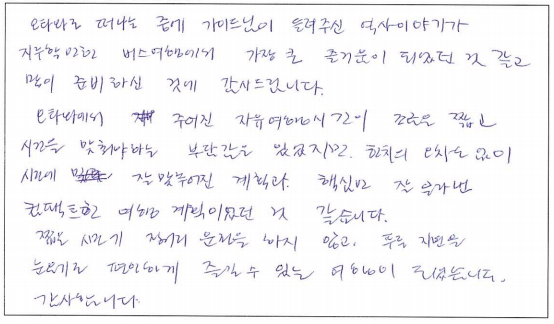 오타와로 떠나는 중에 가이드님이 들려주신 역사이야기가
버스여행에서 가장 큰 즐거움이 되었던 것 같고
많이 준비하신 것에 감사드립니다.
오타와에서 주어진 자유여행시간이 조금은 짧고
시간을 맞춰야하는 부담감은 있었지만, 한치의 오차도 없이
시간에 잘 맞추어진 계획과 핵심만 잘 골라낸
컴팩트한 여행 계획이었던 것 같습니다.
짧은 시간 하지 않고, 푸른 자연을
눈요기로 편안하게 즐길 수 있는 여행이 되었습니다.
감사합니다.